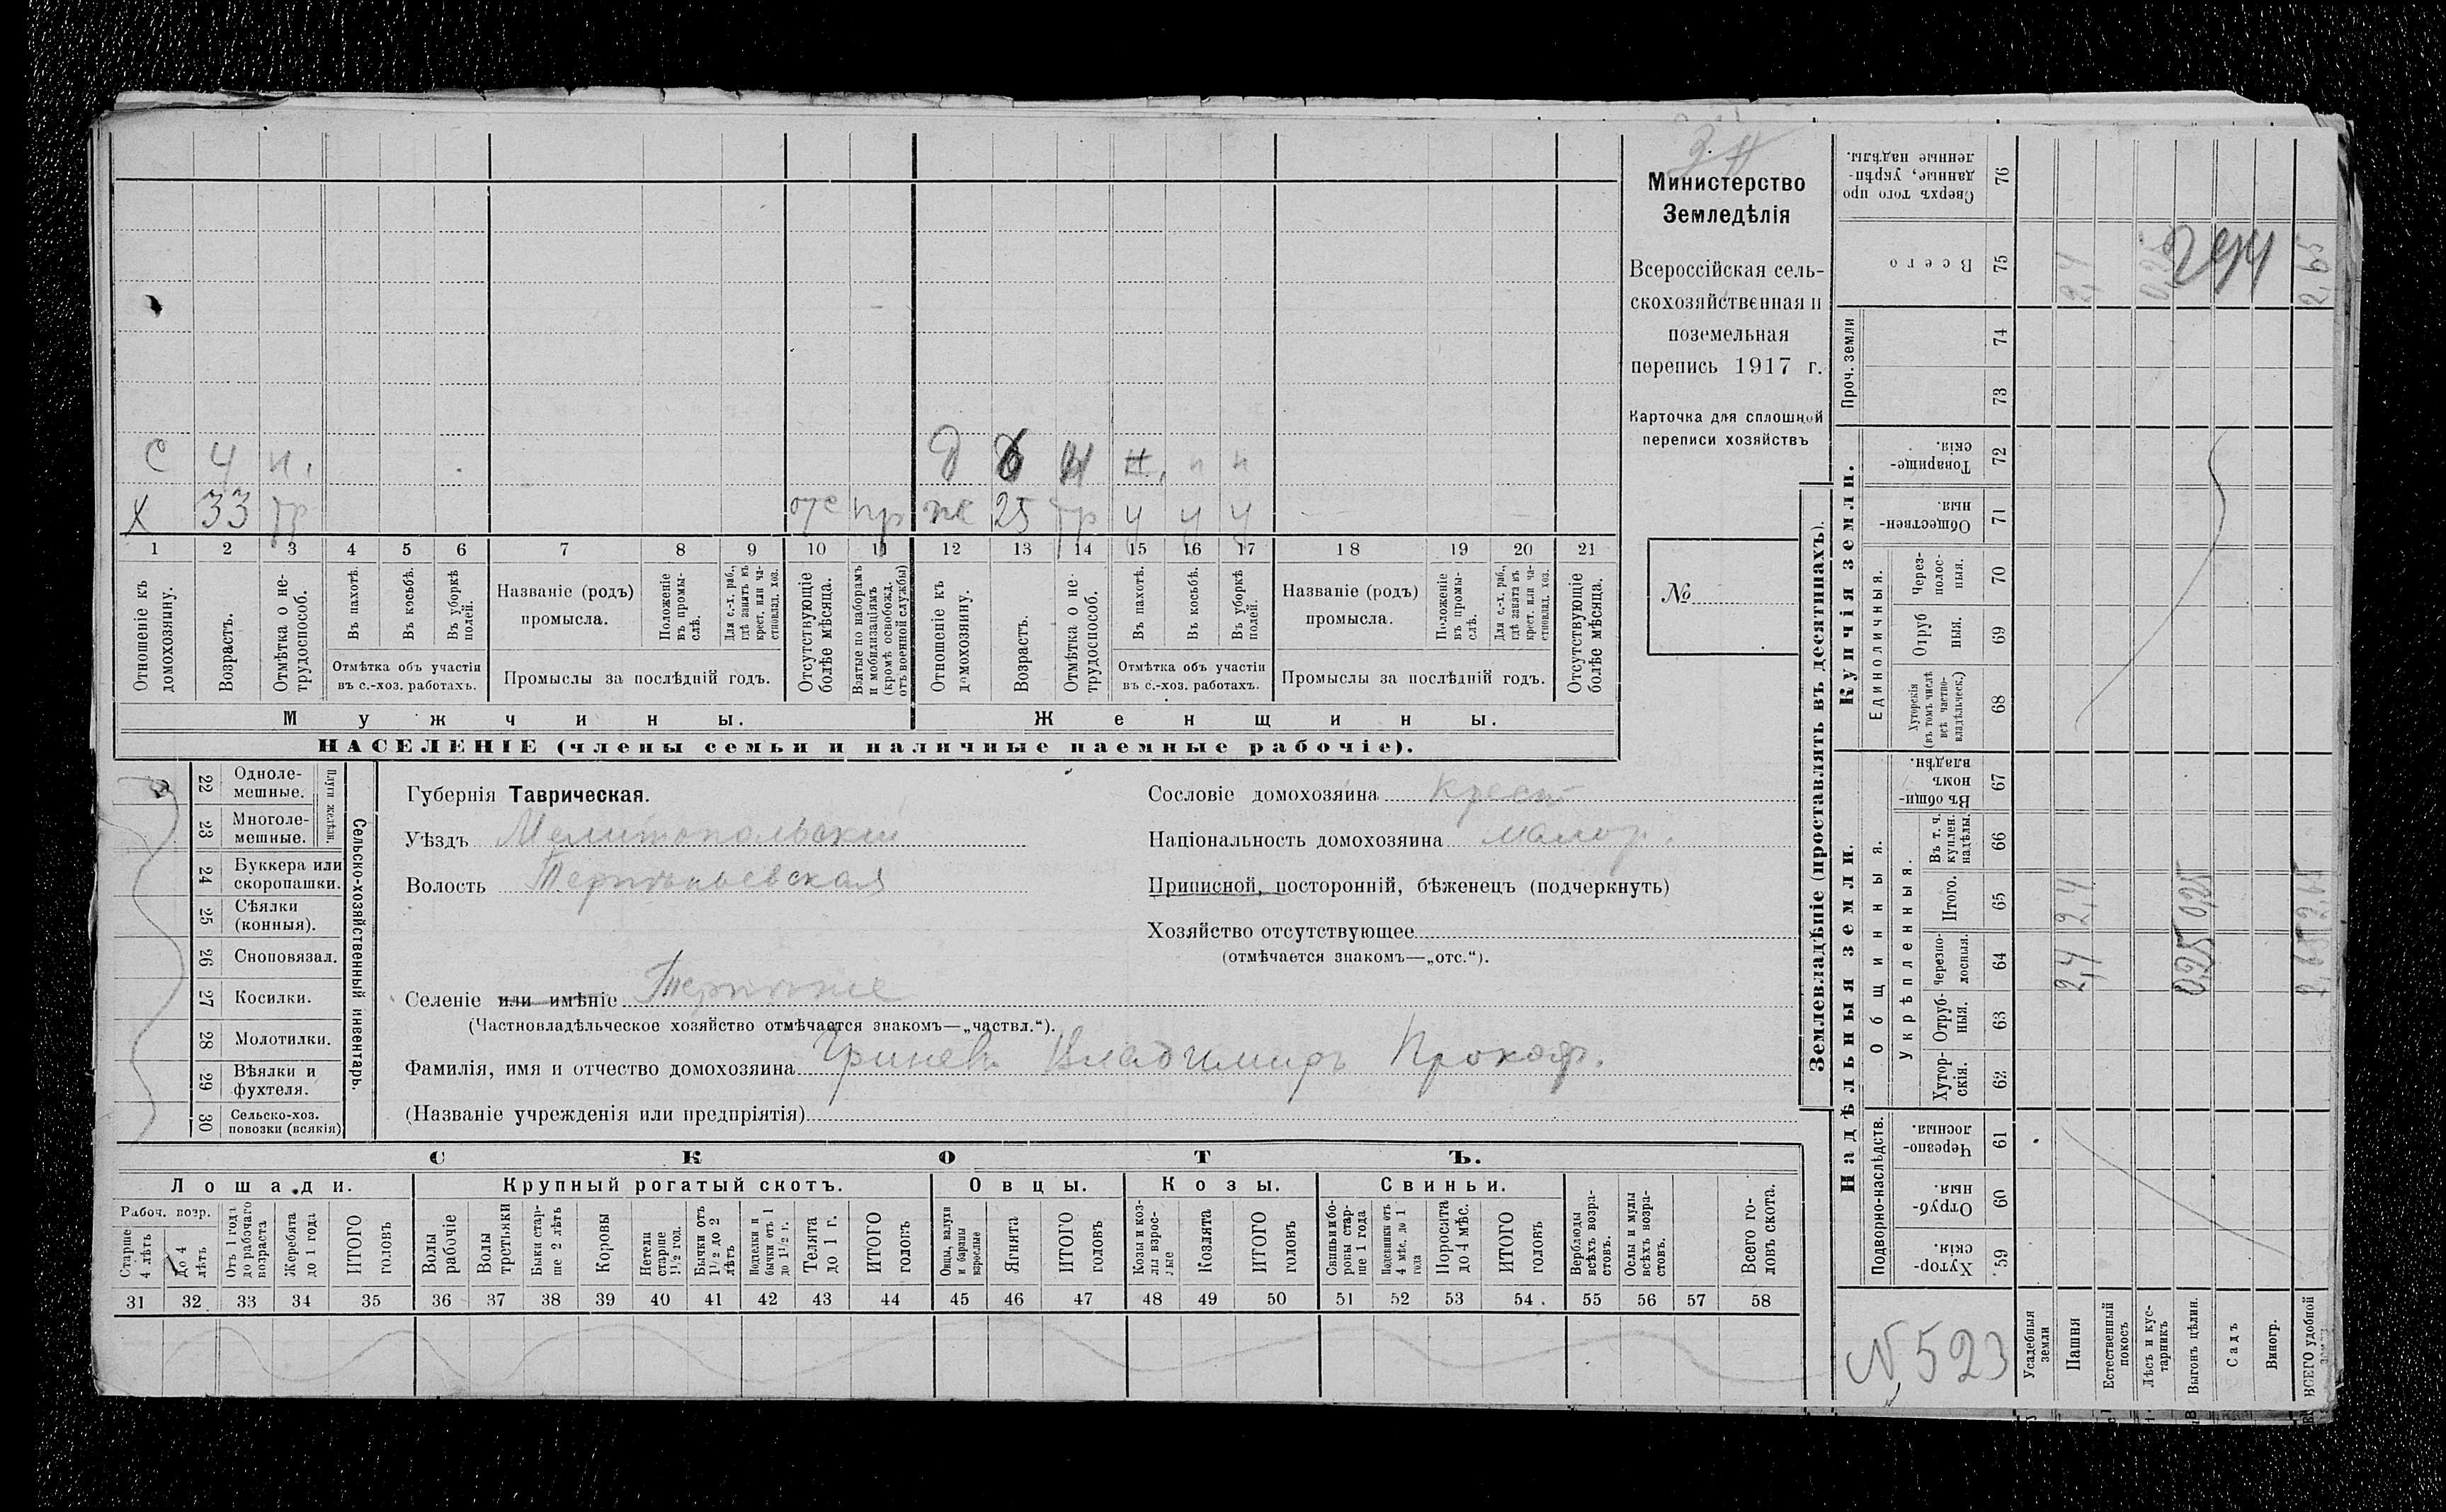 Министерство
Земледѣлія
Всероссійская сель-
скохозяйственная и
поземельная
перепись 1917 г.
Карточка для сплошной
переписи хозяйствъ
№
с 4 н. д 6 н н. н н
х 33 тр отс пр ж 25 тр у у у
1 2 3 4 5 6 7 8 9 10 11 12 13 14 15 16 17 18 19 20 21
Отношеніе къ домохозяину.
Возрастъ.
Отмѣтка о не-трудоспособ.
Въ пахотѣ.
Въ косьбѣ.
Въ уборкѣ полей.
Отмѣтка объ участіи
въ с.-хоз. работахъ.
Названіе (родъ)
промысла.
Положеніе въ промы-слѣ.
Для с.-х. раб., гдѣ занятъ въ крест. или ча-стновлад. хоз.
Промыслы за послѣдній годъ.
Отсутствующіе болѣе мѣсяца.
Взятые по наборамъ и мобилизаціямъ (кромѣ освобожд. отъ военной службы)
Отношеніе къ домохозяину.
Возрастъ.
Отмѣтка о не-трудоспособ.
Въ пахотѣ.
Въ косьбѣ.
Въ уборкѣ полей.
Отмѣтка объ участіи
въ с.-хоз. работахъ.
Названіе (родъ)
промысла.
Положеніе въ промы-слѣ.
Для с.-х. раб., гдѣ занята въ крест. или ча-стновлад. хоз.
Промыслы за послѣдній годъ.
Отсутствующіе болѣе мѣсяца.
Мужчины. Женщины.
НАСЕЛЕНІЕ (члены семьи и наличные наемные рабочіе).
Сельско-хозяйственный инвентарь.
Плуги желѣзн.
22 Одноле-мешные.
23 Многоле-мешные.
24 Буккера или скоропашки.
25 Сѣялки (конныя).
26 Сноповязал.
27 Косилки.
28 Молотилки.
29 Вѣялки и фухтеля.
30 Сельско-хоз. повозки (всякія)
Губернія Таврическая.
Уѣздъ Мелитопольскій
Волость Терпѣньевская
Селеніе или имѣніе Терпѣніе
(Частновладѣльческое хозяйство отмѣчается знакомъ—„частвл.“).
Фамилія, имя и отчество домохозяина Гриневъ Владимиръ Прокоф.
(Названіе учрежденія или предпріятія)
Сословіе домохозяина Крест
Національность домохозяина малор.
Приписной, посторонній, бѣженецъ (подчеркнуть)
Хозяйство отсутствующее
(отмѣчается знакомъ—„отс.“).
СКОТЪ.
Лошади. Крупный рогатый скотъ. Овцы. Козы. Свиньи.
Рабоч. возр.
Старше 4 лѣтъ
До 4 лѣтъ
Отъ 1 года до рабочаго возраста
Жеребята до 1 года
ИТОГО головъ
Волы рабочіе
Волы третьяки
Быки стар-ше 2 лѣтъ
Коровы
Нетели старше 1½ год.
Бычки отъ 1½ до 2 лѣтъ
Подтелки и бычки отъ 1 до 1½ г.
Телята до 1 г.
ИТОГО головъ
Овцы, валухи и бараны взрослые
Ягнята
ИТОГО головъ
Козы и коз-лы взрос-лые
Козлята
ИТОГО головъ
Свиньи и бо-ровы стар-ше 1 года
Подсвинки отъ 4 мѣс. до 1 года
Поросята до 4 мѣс.
ИТОГО головъ
Верблюды всѣхъ возра-стовъ.
Ослы и мулы всѣхъ возра-стовъ.
Всего го-ловъ скота.
31 32 33 34 35 36 37 38 39 40 41 42 43 44 45 46 47 48 49 50 51 52 53 54 55 56 57 58
Землевладѣніе (проставлять въ десятинахъ).
Надѣльныя земли.
Купчія земли.
Проч. земли
Подворно-наслѣдств.
Общинныя.
Укрѣпленныя.
Единоличныя.
Хутор-скія. 59
Отруб-ныя. 60
Черезпо-лосныя. 61
Хутор-скія. 62
Отруб-ныя. 63
Черезпо-лосныя. 64
Итого. 65
Въ т. ч. куплен. надѣлы. 66
Въ общин-номъ владѣн. 67
Хуторскія (въ томъ числѣ всѣ частно-владѣльческ.) 68
Отруб ныя. 69
Через-полос-ныя. 70
Обществен-ныя. 71
Товарище-скія. 72
73
74
Всего 75
Сверхъ того про данные, укрѣп-ленные надѣлы. 76
Усадебныя земли
Пашня 2,4 2,4 2,4
Естественный покосъ
Лѣсъ и кус-тарникъ 0,25
Выгонъ цѣлин. 0,25 0,25
Садъ
Виногр.
ВСЕГО удобной 2,65 2,65 2,65
294
N 523